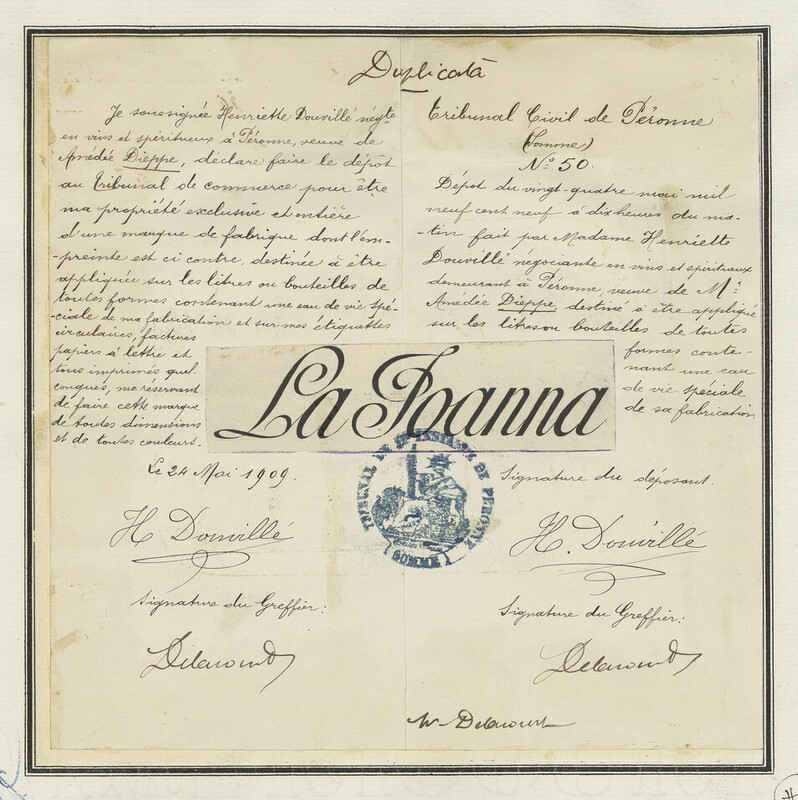 Duplicata
Je soussignée Henriette Douvillé négte
en vins et spiritueux à Péronne, veuve de
Amédée Dieppe, déclare faire le dépôt
au Tribunal de commerce pour être
ma propriété exclusive et entière
d'une marque de fabrique dont l'em-
-preinte est ci contre, destinée à être
appliquée sur les litres ou bouteilles de
toutes formes contenant une eau de vie spé-
-ciale de ma fabrication et sur mes étiquettes
circulaires, factures
papiers à lettre et
tous imprimés quel
conques, me réservant
de faire cette marque
de toutes dimensions
et de toutes couleurs.
Le 24 Mai 1909.
H Douvillé
Signature du Greffier:
Tribunal Civil de Péronne
(Somme)
N° 50.
Dépot du vingt-quatre mai mil
neuf cent neuf à dix heures du ma-
-tin fait par Madame Henriette
Douvillé négociante en vins et spiritueux
demeurant à Péronne, veuve de Mr
Amédée Dieppe, destiné à être appliqué
sur les litres ou bouteilles de toutes
formes conte-
nant une eau
de vie spéciale
de sa fabrication
La Joanna
TRIBUNAL DE 1ERE INSTANCE DE PERONNE
(SOMME)
Signature du déposant.
H. Douvillé
Signature du Greffier:
Delacourt